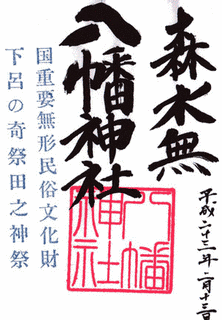 平成二十三年二月十三日
森水無
八幡神社
八幡神社
国重要無形民俗文化財
下呂の奇祭田之神祭